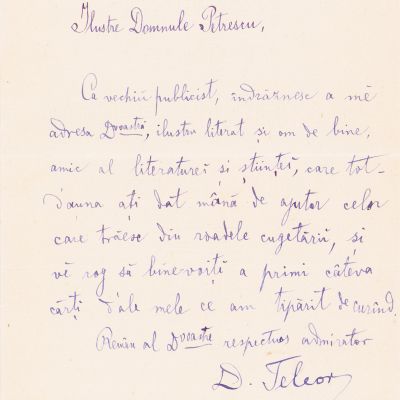 Ilustre Domnule Petrescu,
Ca vechiŭ publicist, îndrăznesc a mĕ
adresa Dvoastră, ilustru literat și om de bine,
amic al literatureĭ și științeĭ, care tot-
dauna ați dat mână de ajutor celor
care trăesc din roadele cugetăriĭ, și
vĕ rog să binevoițĭ a primi câteva
cărți d'ale mele ce am tipărit de curînd.
Remân al Dvoastre respectuos admirator
D. Teleor